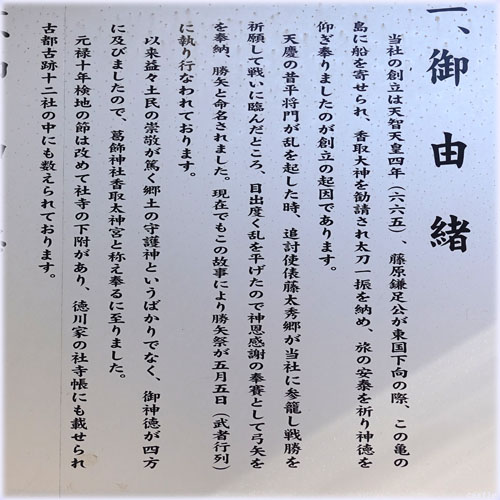 一、御由緒
当社の創立は天智天皇四年（六六五）、藤原鎌足公が東国下向の際、この亀の
島に船を寄せられ、香取大神を勧請され太刀一振を納め、旅の安泰を祈り神徳を
仰ぎ奉りましたのが創立の起因であります。
天慶の昔平将門が乱を起した時、追討使俵藤太秀郷が当社に参籠し戦勝を
祈願して戦いに臨んだところ、目出度く乱を平げたので神恩感謝の奉賽として弓矢を
を奉納、勝矢と命名されました。現在でもこの故事により勝矢祭が五月五日（武者行列）
に執り行なわれております。
以来益々土民の崇敬が篤く郷土の守護神というばかりでなく、御神徳が四方
に及びましたので、葛飾神社香取太神宮と称え奉るに至りました。
元禄十年検地の節は改めて社寺の下附があり、徳川家の社寺帳にも載せられ
古都古跡十二社の中にも数えられております。